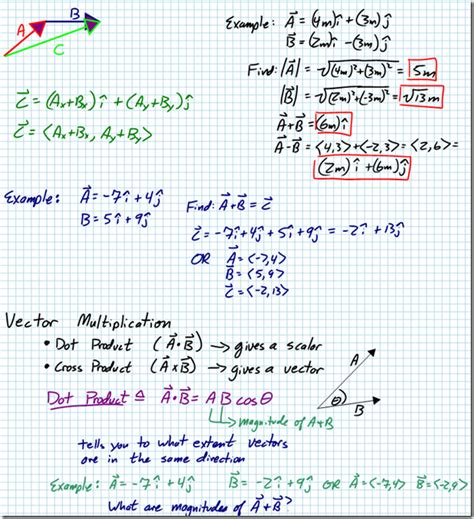 A B C
C⃗ = (Ax+Bx)î + (Ay+By)ĵ
C⃗ = <Ax+Bx, Ay+By>
Example: A⃗ = (4m)î + (3m)ĵ
B⃗ = (2m)î - (3m)ĵ
Find: |A⃗| = √((4m)²+(3m)²) = 5m
|B⃗| = √((2m)²+(-3m)²) = √13 m
A⃗+B⃗ = (6m)î
A⃗-B⃗ = <4,3>+<-2,3> = <2,6> =
(2m)î + (6m)ĵ
Example: A⃗ = -7î + 4ĵ
B = 5î + 9ĵ
Find: A⃗+B⃗ = C⃗
C⃗ = -7î+4ĵ + 5î + 9ĵ = -2î + 13ĵ
OR A⃗ = <-7,4>
B⃗ = <5,9>
C⃗ = <-2,13>
Vector Multiplication
• Dot Product (A⃗•B⃗) → gives a scalar
• Cross Product (A⃗×B⃗) → gives a vector
Dot Product ≜ A⃗•B⃗ = A B cosθ
→ magnitude of A+B
A θ B
tells you to what extent vectors
are in the same direction
Example: A⃗ = -7î + 4ĵ B⃗ = -2î + 9ĵ OR A⃗=<-7,4> B⃗=<-2,9>
What are magnitudes of A⃗+B⃗?